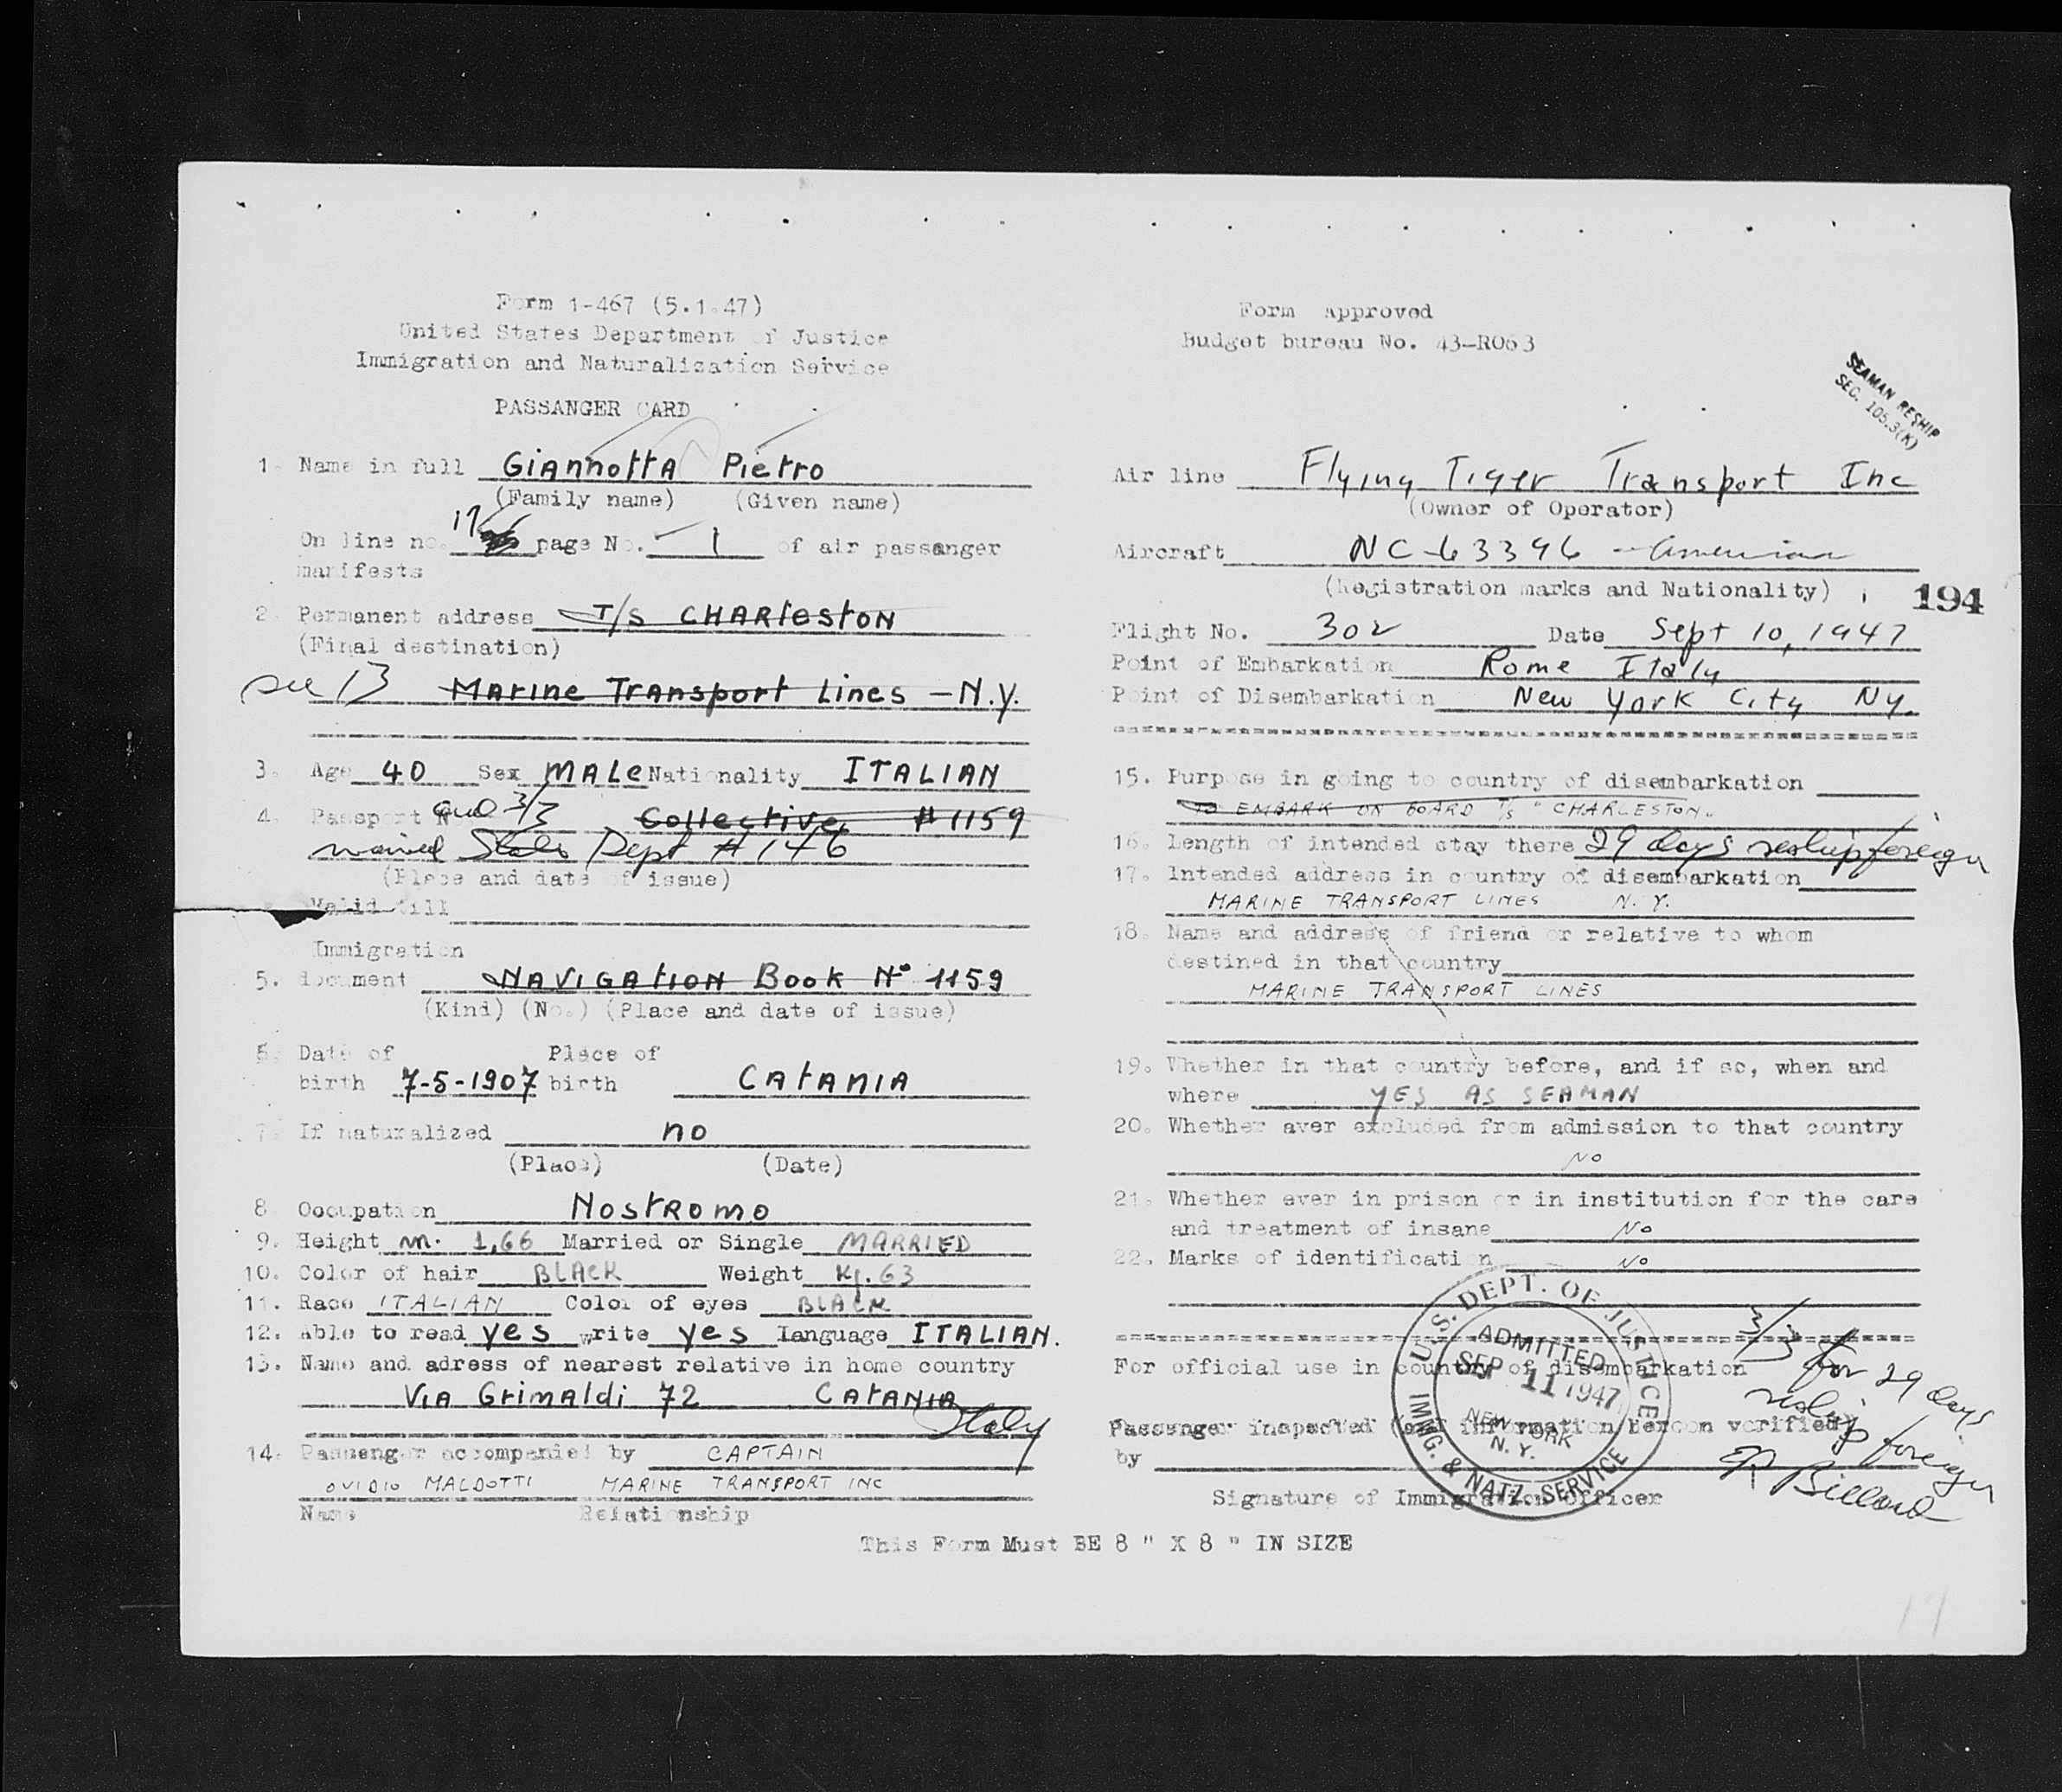 Form 1-467 (5.1.47)
United States Department of Justice
Immigration and Naturalization Service
PASSANGER CARD
1. Name in full Giannotta Pietro
(Family name) (Given name)
On line no. 17 page No. 1 of air passanger
manifests
2. Permanent address T/S CHARleston
(Final destination)
see 13 Marine Transport Lines - N.y.
3. Age 40 Sex MALe Nationality ITALIAN
4. Passport N 3/3 Collective #1159
waived State Dept #146
(Place and date of issue)
Valid till
Immigration
5. document NAVIGATION Book N° 1159
(Kind) (No.) (Place and date of issue)
6. Date of Place of
birth 7-5-1907 birth CATANIA
7. If naturalized no
(Place) (Date)
8. Occupation Nostromo
9. Height m. 1,66 Married or Single MARRIED
10. Color of hair BLACK Weight Kg. 63
11. Race ITALIAN Color of eyes BLACK
12. Able to read yes write yes Language ITALIAN.
13. Name and adress of nearest relative in home country
VIA GrimAldi 72 CATANIA
Italy
14. Passenger accompanied by CAPTAIN
OVIDIO MALDOTTI MARINE TRANSPORT INC
Name Relationship
Form approved
Budget bureau No. 43-R063
SEAMAN RESHIP
SEC. 105.3(K)
Air line Flying Tiger Transport Inc
(Owner of Operator)
Aircraft NC-63396 - American
(Registration marks and Nationality)
194
Flight No. 302 Date Sept 10, 1947
Point of Embarkation Rome Italy
Point of Disembarkation New York City Ny.
15. Purpose in going to country of disembarkation
TO EMBARK ON BOARD T/S "CHARLESTON"
16. Length of intended stay there 29 days reship foreign
17. Intended address in country of disembarkation
MARINE TRANSPORT LINES N.Y.
18. Name and address of friend or relative to whom
destined in that country
MARINE TRANSPORT LINES
19. Whether in that country before, and if so, when and
where YES AS SEAMAN
20. Whether aver excluded from admission to that country
NO
21. Whether ever in prison or in institution for the care
and treatment of insane No
22. Marks of identification No
U.S. DEPT. OF JUSTICE
ADMITTED
SEP 11 1947
NEW YORK
N.Y.
IMMG. & NATZ. SERVICE
3/3 for 29 days
reship foreign
For official use in country of disembarkation
Passenger inspected (and information hereon verified)
by R Billard
Signature of Immigration Officer
This Form Must BE 8 " X 8 " IN SIZE
17